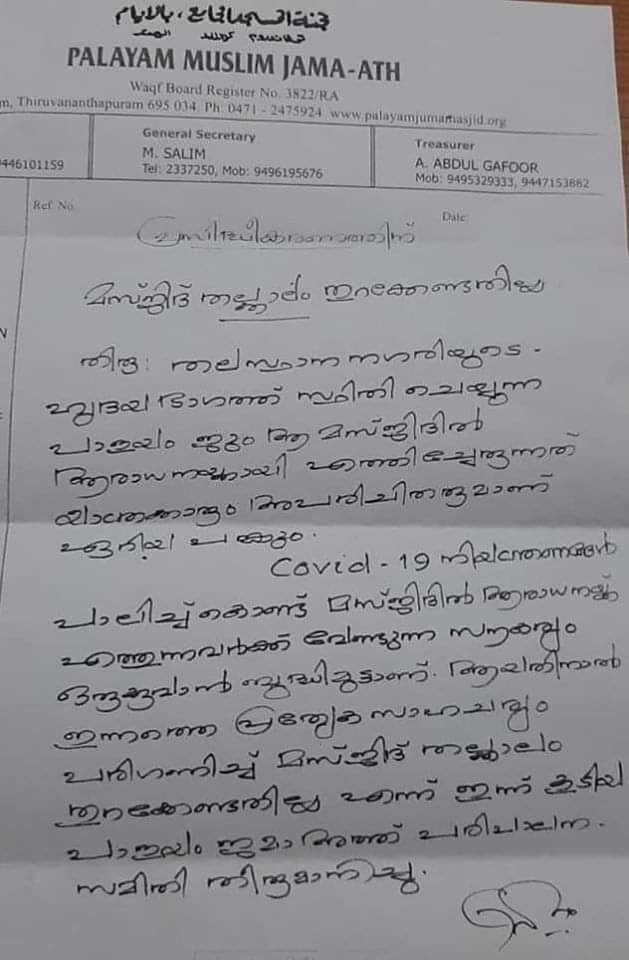 PALAYAM MUSLIM JAMA-ATH
Waqf Board Register No. 3822/RA
Thiruvananthapuram 695 034 Ph: 0471 - 2475924 www.palayamjumamasjid.org
9446101159
General Secretary
M. SALIM
Tel: 2337250, Mob: 9496195676
Treasurer
A. ABDUL GAFOOR
Mob: 9495329333, 9447153882
Ref. No.
Date:
പ്രസിദ്ധീകരണത്തിന്
മസ്ജിദ് തല്ക്കാലം തുറക്കേണ്ടതില്ല
തിരു: തലസ്ഥാന നഗരിയുടെ -
ഹൃദയ ഭാഗത്ത് സ്ഥിതി ചെയ്യുന്ന
പാളയം ജുമാ മസ്ജിദിൽ
ആരാധനക്കായി എത്തിച്ചേരുന്നത്
യാത്രക്കാരും അപരിചിതരുമാണ്
ഏറിയ പങ്കും.
Covid - 19 നിയന്ത്രണങ്ങൾ
പാലിച്ച് കൊണ്ട് മസ്ജിദിൽ ആരാധനക്ക്
എത്തുന്നവർക്ക് വേണ്ടുന്ന സൗകര്യം
ഒരുക്കുവാൻ ബുദ്ധിമുട്ടാണ്. ആയതിനാൽ
ഇന്നത്തെ പ്രത്യേക സാഹചര്യം
പരിഗണിച്ച് മസ്ജിദ് തല്ക്കാലം
തുറക്കേണ്ടതില്ല എന്ന് ഇന്ന് കൂടിയ
പാളയം ജമാഅത്ത് പരിപാലന -
സമിതി തീരുമാനിച്ചു.